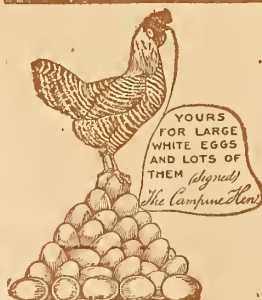 YOURS
FOR LARGE
WHITE EGGS
AND LOTS OF
THEM (signed)
The Campine Hen